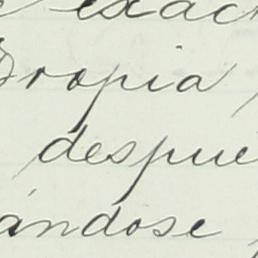 e exac
Propia
despué
ándose